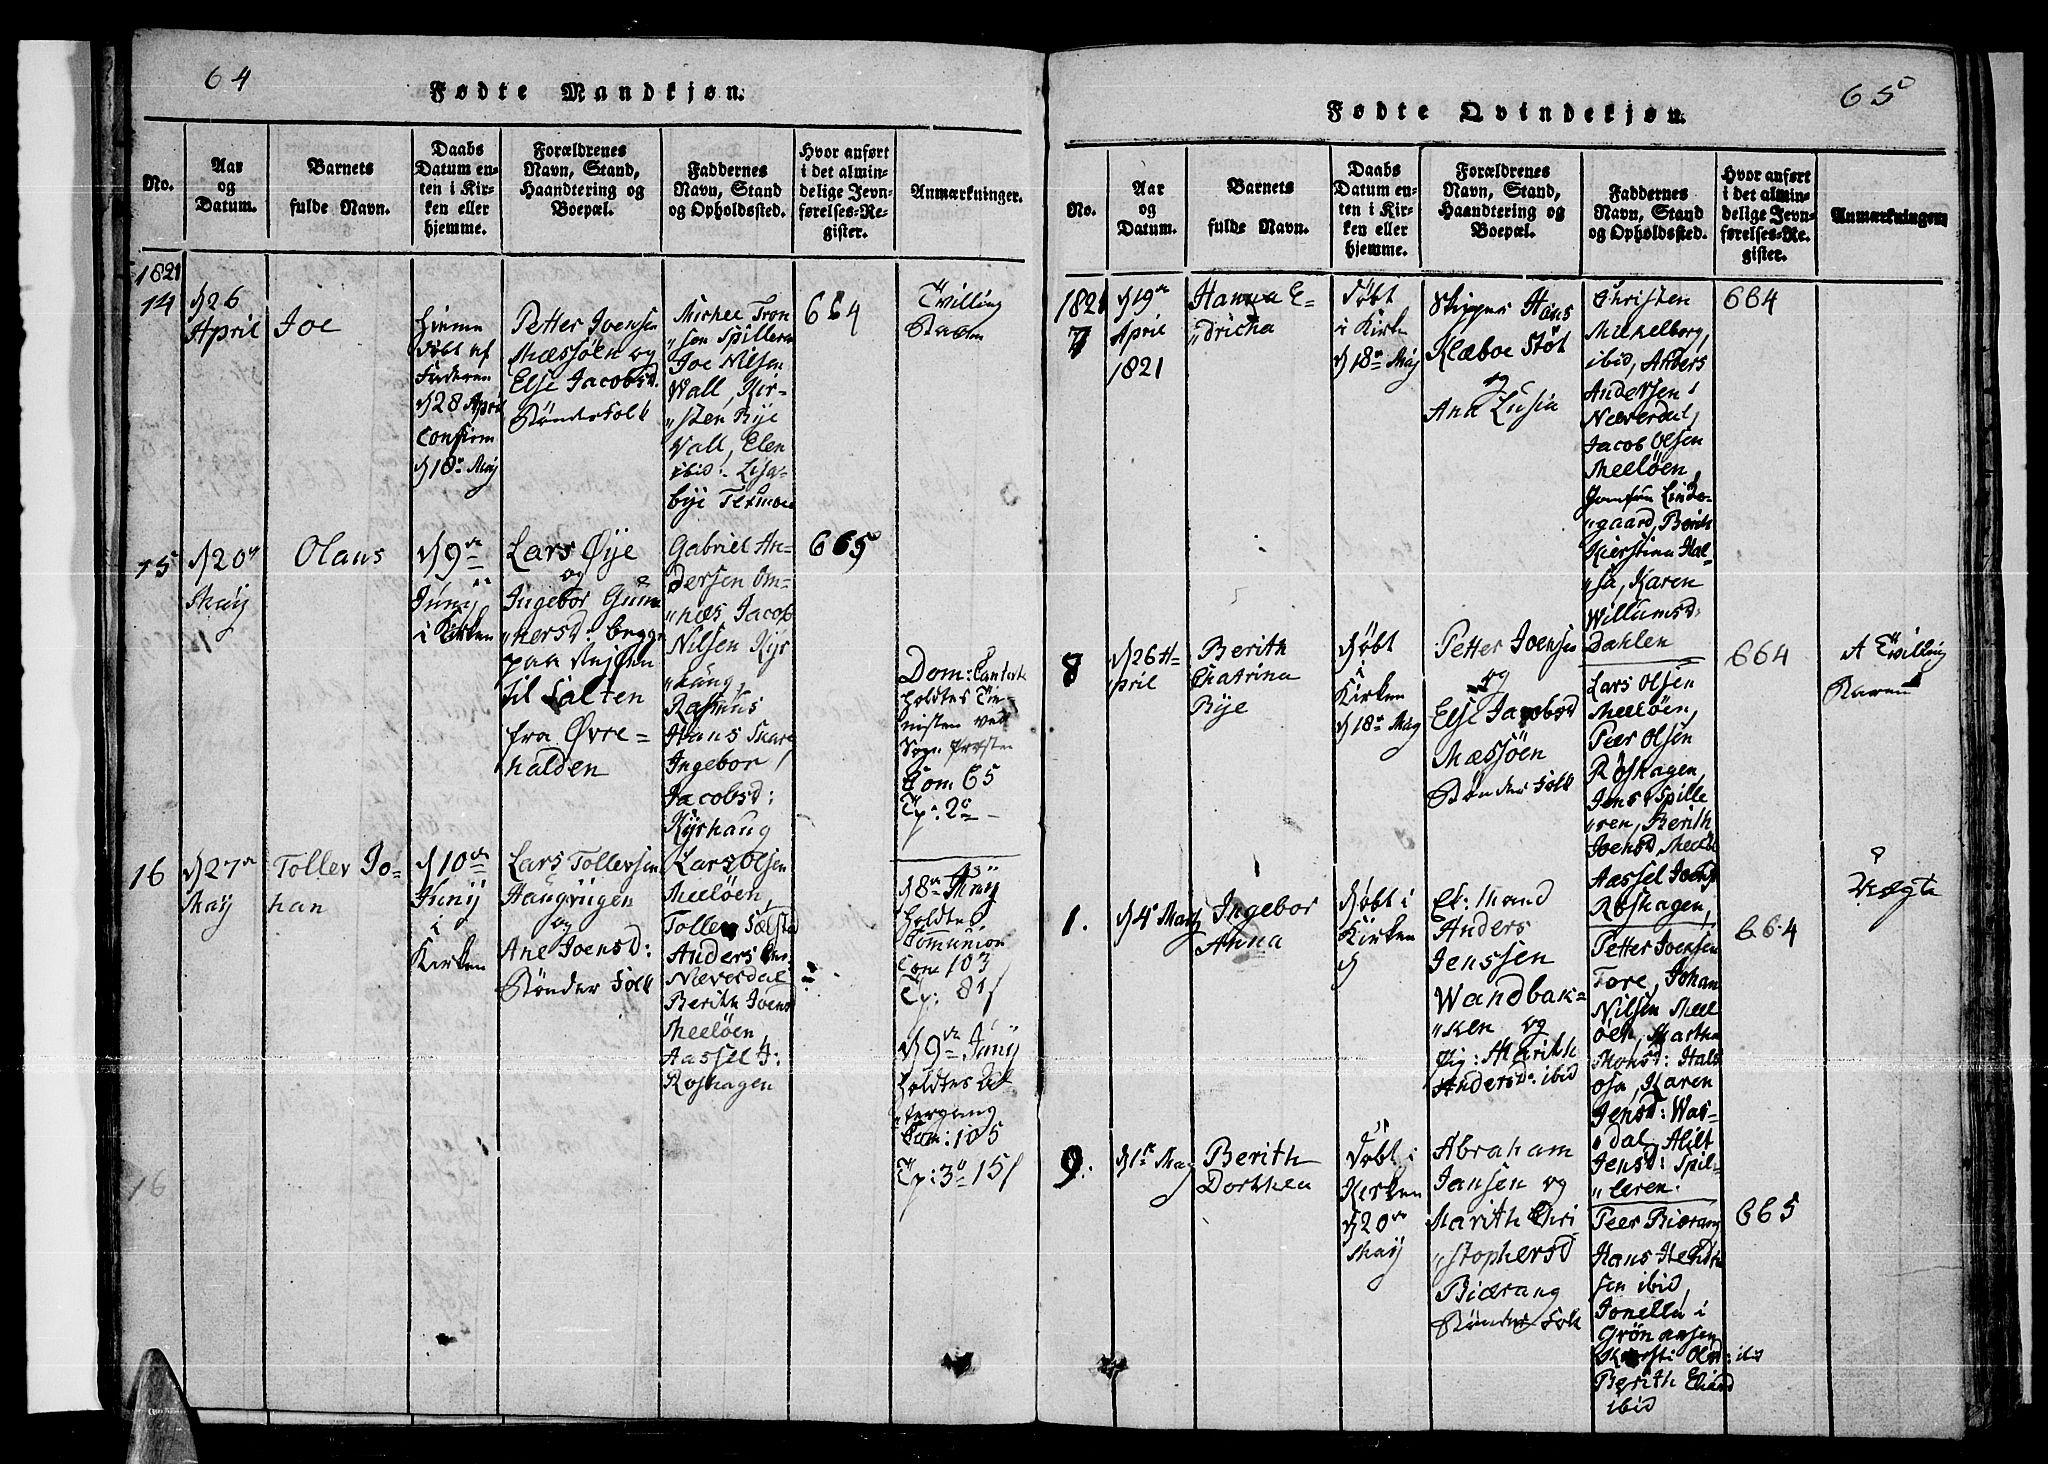 64
Fødte Mandkjøn.
No.
Aar
og
Datum.
Barnets
fulde Navn.
Daabs
Datum en-
ten i Kir-
ken eller
hjemme.
Forældrenes
Navn, Stand,
Haandtering og
Boepæl.
Faddernes
Navn, Stand
og Opholdssted.
Hvor anført
i det almin-
delige Jevn-
førelses-Re-
gister.
Anmærkninger.
1821
14
d 26
April
Joe
hiemme
døbt af
Faderen
d 28 April
Confirm
d 18 May
Petter Joensen
Mæssöen og
Else Jacobsd.
Bønder Folk
Michel Tron
"sen Spilleren
Joe Nilsen
Vall, Kir-
"sten Bye
Vall, Elen
ibid: Lisa-
664
Tvilling
Barn
15
d 20
May
Olaus
d 9de
Junij
i Kirken
Lars Øye
og
Ingebor Gun
"nersd: begge
paa Rejsen
til Salten
fra Øvre-
halden
Gabriel An-
dersen Om-
"næs, Jacob
Nilsen Kjs
"haug,
Rasmus
Hans Skare
Ingebor
Jacobsd:
Kjshaug
665
Dom:
holdtes
ved
Sogne Præsten
Com 65
Tp: 2
16
d 27
May
Tollev Jo-
han
d 10de
Junij
i
Kirken
Lars Tollevsen
Haugvigen
og
Ane Joensd:
Bønder Folk
Lars Olsen
Meelöen,
Tollev Sælstad
Anders
Næverdal
Berith Joens
Meelöen,
Aassel J:
Roshagen
d 8de Junij
holdtes
Communion
Com 103
Tp: 81
d 9de Junij
holdtes Al-
"tergang
Com: 105
Tp: 3 15
16
65
Fødte Qvindekjøn.
No.
Aar
og
Datum.
Barnets
fulde Navn.
Daabs
Datum en-
ten i Kir-
ken eller
hjemme.
Forældrenes
Navn, Stand,
Haandtering og
Boepæl.
Faddernes
Navn, Stand
og Opholdssted.
Hvor anført
i det almin-
delige Jevn-
førelses-Re-
gister.
Anmærkninger
1821
7
d 19de
April
1821
Hanna E-
"dricha
Døbt
i Kirken
d 18 May
Skipper Hans
Klæboe Støt
og
Ana Lusia
Christen
Michelborg,
ibid, Anders
Andersen i
Næverdal,
Jacob Olsen
Meelöen,
Jomfrue Linde-
"gaard, Berith
Kierstina Hal-
"sa, Karen
Willumsd:
Dahlen
664
8
d 26 A-
pril
Berith
Chatrina
Bye
Døbt
i
Kirken
d 18 May
Petter Joensen
og
Else Jacobsd
Mæssöen
Bønder Folk
Lars Olsen
Meelöen,
Peer Olsen
Röshagen,
Jens Spille
"ren, Berith
Joensd, Meelö
Aassel Joensd
Roshagen,
664
A Tvilling
Baren
1.
d 4 May
Ingebor
Anna
Døbt i
Kirken
d
Ek: Mand
Anders
Jenssen
Wandbak-
"ken og
Pig: Marith
Andersd: ibid
Petter Joensen
Fore, Johan
Nilsen Meel
öen, Martha
Monsd: Hals
osa, Karen
Jensd: Was-
"dal, Alilt
Jensd: Spil-
"leren.
664
Uægte
9.
d 1ste May
Berith
Dorthea
Døbt i
Kirken
d 20de
May
Abraham
Jansen og
Marith Chri
"stophersd
Biærang
Bønder Folk
Peer Biærang
Hans Hendri
sen ibid,
Jonella i
Grönaasen
Olsd: ibid
Berith Eliasd
ibid
665